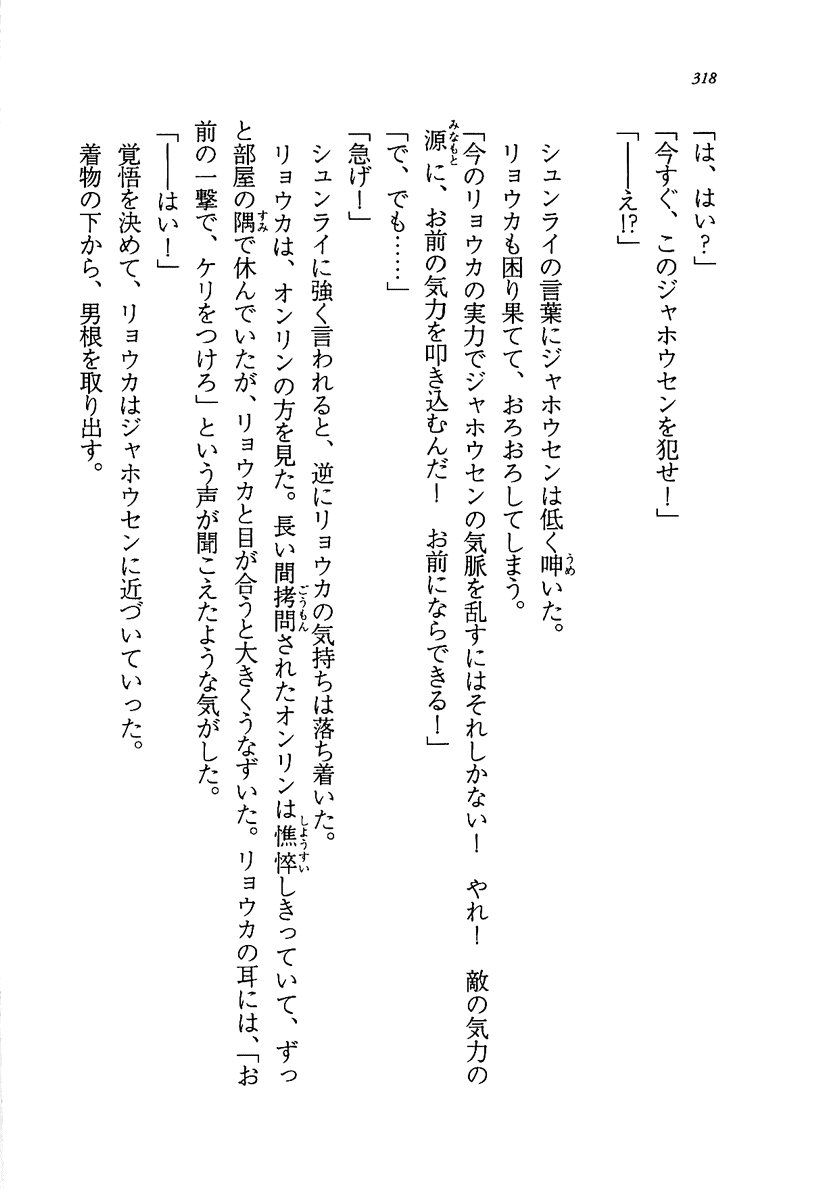 318
「は、はい？」
「今すぐ、このジャホウセンを犯せ！」
「――え!?」
シュンライの言葉にジャホウセンは低く呻いた。
リョウカも困り果てて、おろおろしてしまう。
「今のリョウカの実力でジャホウセンの気脈を乱すにはそれしかない！　やれ！　敵の気力の
源に、お前の気力を叩き込むんだ！　お前にならできる！」
「で、でも……」
「急げ！」
シュンライに強く言われると、逆にリョウカの気持ちは落ち着いた。
リョウカは、オンリンの方を見た。長い間拷問されたオンリンは憔悴しきっていて、ずっ
と部屋の隅で休んでいたが、リョウカと目が合うと大きくうなずいた。リョウカの耳には、「お
前の一撃で、ケリをつけろ」という声が聞こえたような気がした。
「――はい！」
覚悟を決めて、リョウカはジャホウセンに近づいていった。
着物の下から、男根を取り出す。